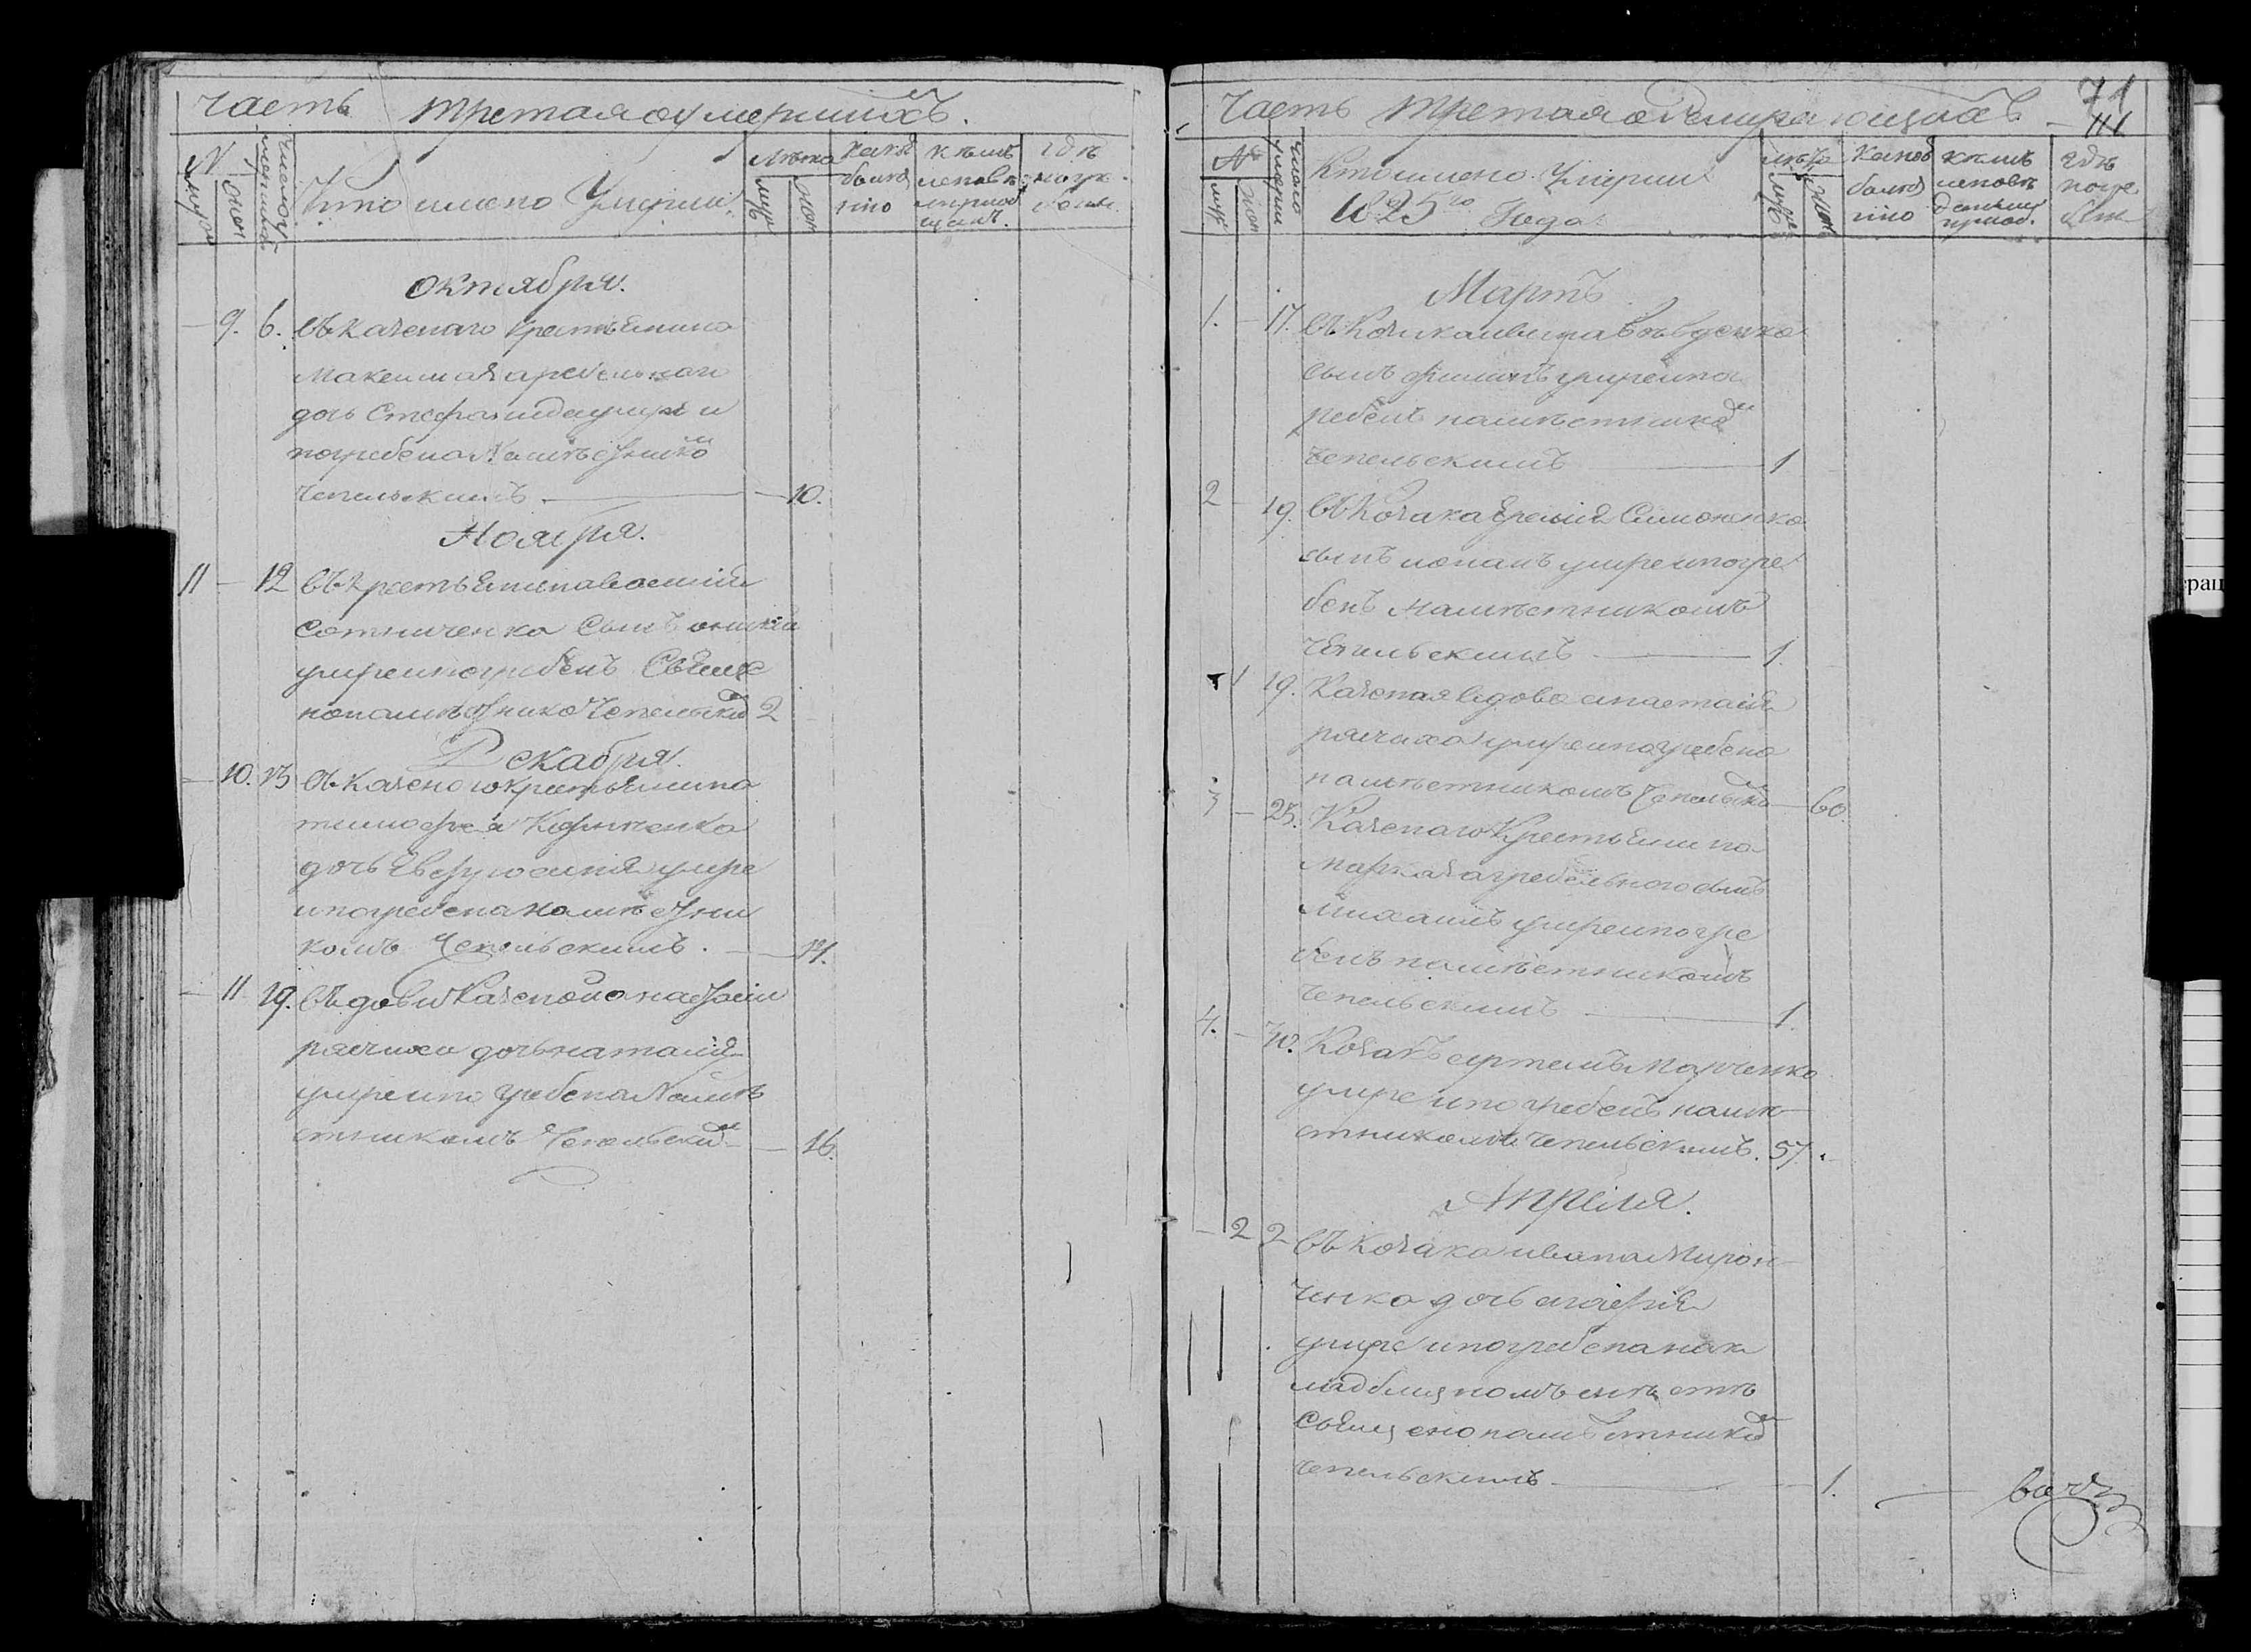 часть третая оумершихъ.
N
муж
жен
число умершихъ
Кто имено Умерли
лѣта
муж
жен
какою
болѣз
нію
кѣмъ
исповѣ
и приоб
щенъ.
гдѣ
погре
бенъ
октября.
9. 6. въ казенаго крестьянина
Максима загребельнаго
дочь Стефанида умре и
погребена Намѣстникомъ
Чепельскимъ 10.
Ноября.
11 12 въ крестьянина василия
Сотниченка сынъ
умре и погребенъ Священо
намѣстнико Чепельскимъ 2
Декабря.
10. 13 въ казеного крестьянина
тимофея
дочь Евфросиния умре
и погребена намѣстни
комъ Чепельскимъ.
11 19. въ довы казеной анастасіи
дочь наталія
умре и погребена Намѣ
стникомъ Чепельскимъ 16.
часть третая о умирающихъ
71
111
№
муж
жен
число умерши
Кто имено Умерли
1825го Года
лѣта
муж
жен
какою
болѣз
нію
кѣмъ
исповѣ
данъ и
приоб.
гдѣ
погре
бен
Мартъ
1. 17. въ козака ивана
сынъ умре и пог
ребенъ намѣстникомъ
Чепельскимъ 1
2 19. въ козака Симоненка
сынъ иоанъ умре и погре
бенъ намѣстникомъ
Чепельскимъ 1.
1 19. Казеная вдова анастасія
умре и погребена
намѣстникомъ Чепельскимъ 60.
3 25. Казенаго Крестьянина
Марка загребельного сынъ
михаилъ умре и погре
бенъ намѣстникомъ
Чепельскимъ 1.
4. 30. Козакъ артемъ Марченко
умре и погребенъ намѣ
стникомъ Чепельскимъ. 57.
Апреля.
2 2 въ козака ивана Мирон
ченка дочь
умре и погребена на к
ладбищномъ мѣстѣ
Священонамѣстникомъ
Чепельскимъ 1.